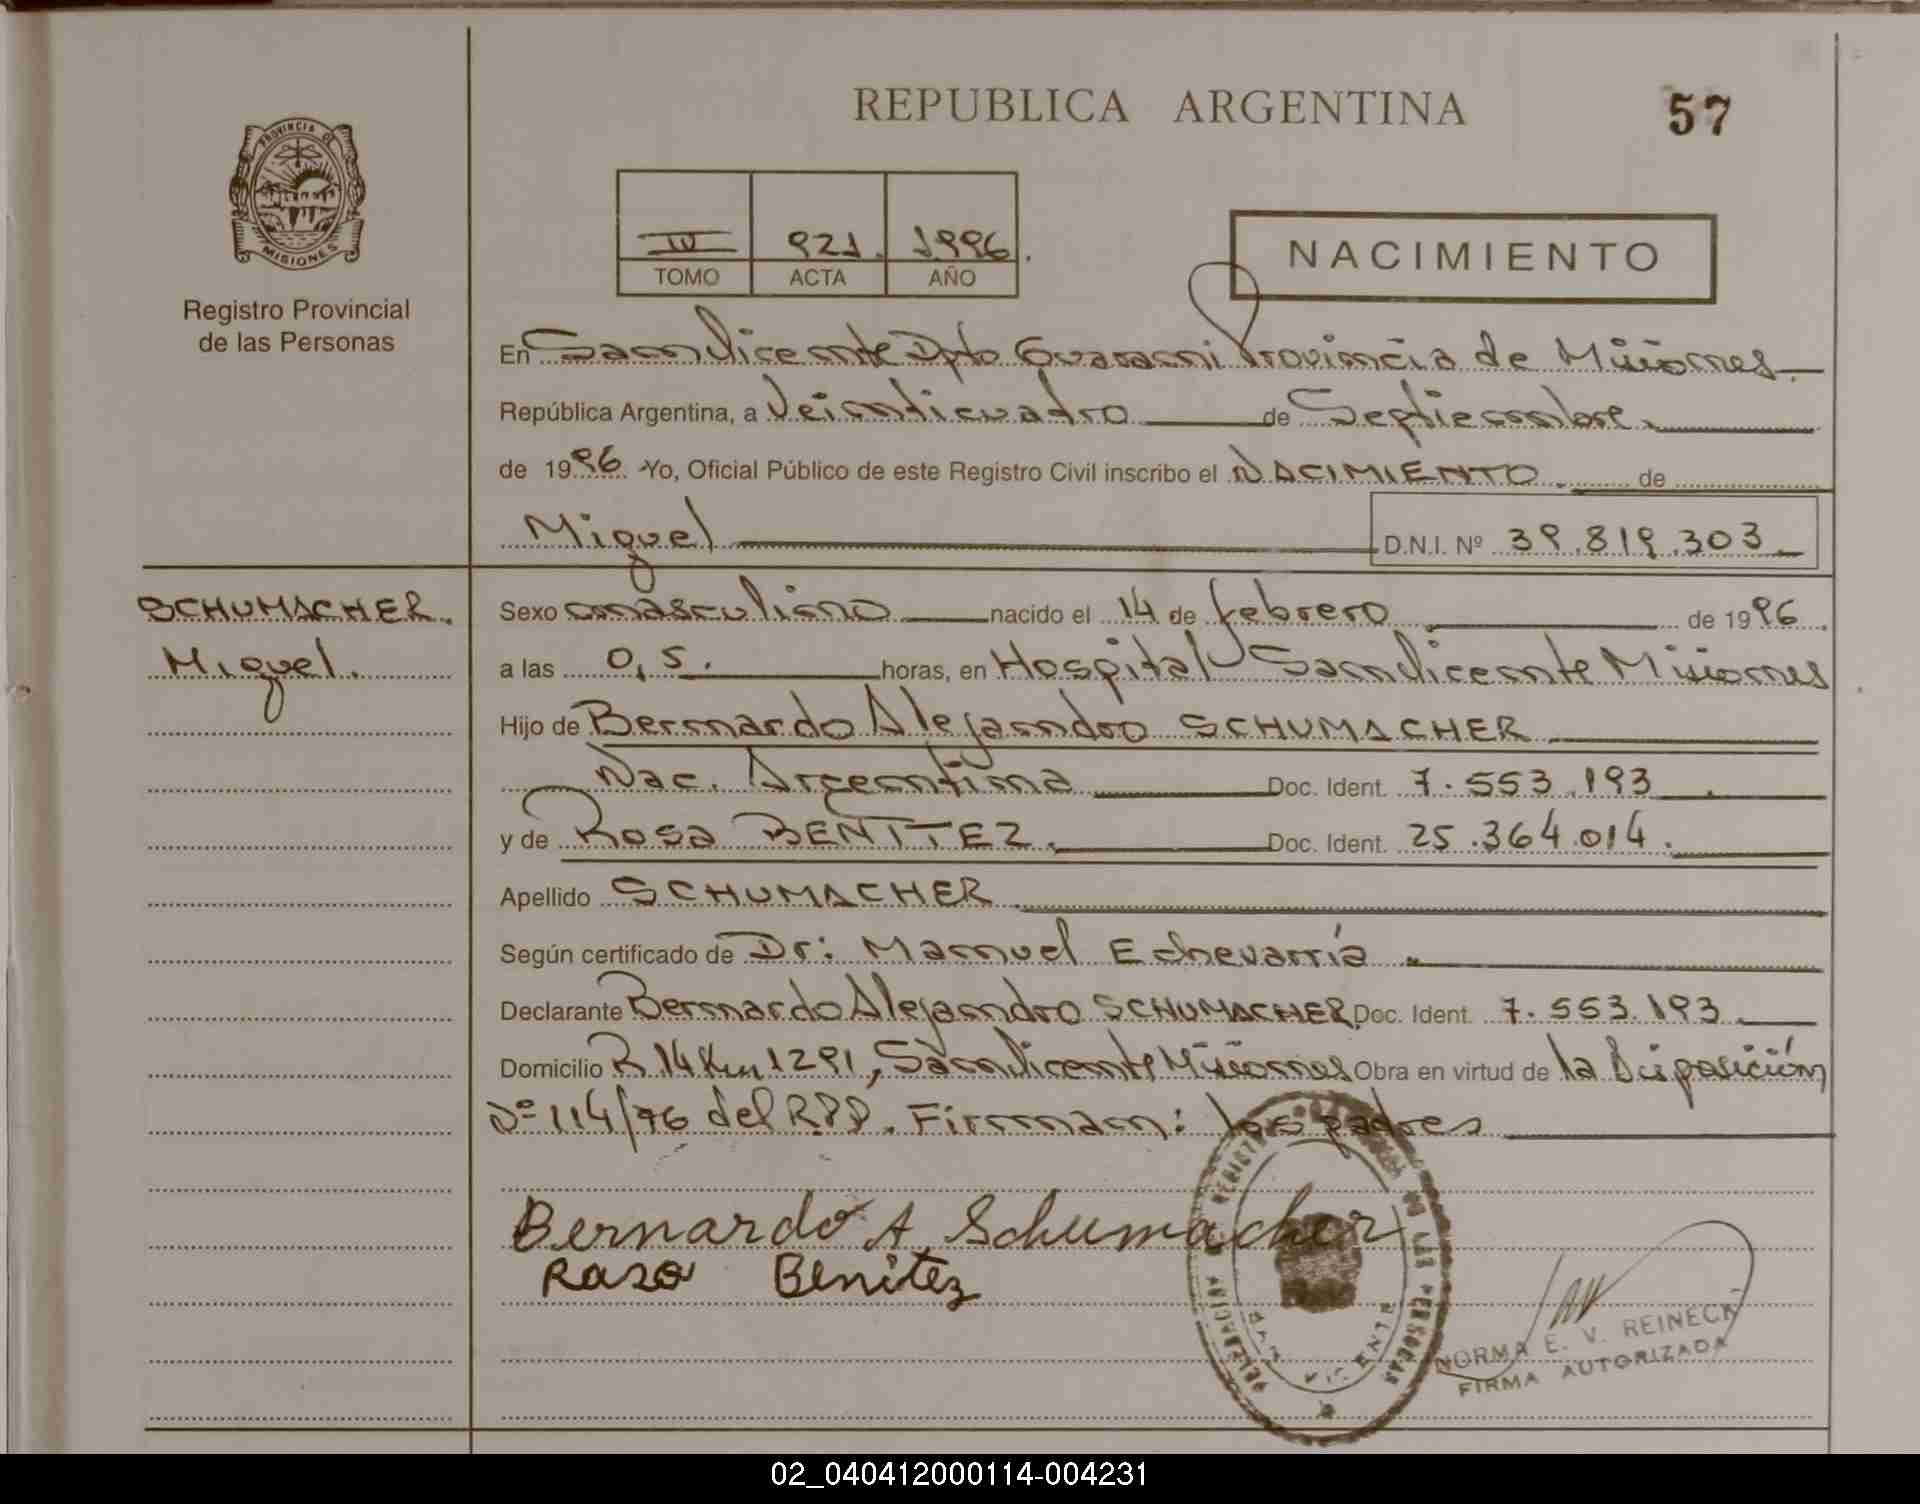 REPUBLICA ARGENTINA
57
PROVINCIA DE
MISIONES
Registro Provincial
de las Personas
IV 921. 1996.
TOMO ACTA AÑO
NACIMIENTO
En San Vicente Dpto Guarani Provincia de Misiones.
República Argentina, a Veinticuatro de Septiembre.
de 1996. Yo, Oficial Público de este Registro Civil inscribo el NACIMIENTO. de
Miguel D.N.I. Nº 39.819.303
SCHUMACHER.
Miguel.
Sexo masculino nacido el 14 de febrero de 1996.
a las 0,5. horas, en Hospital San Vicente Misiones
Hijo de Bernardo Alejandro SCHUMACHER
Nac. Argentina Doc. Ident. 7.553.193
y de Rosa BENITEZ. Doc. Ident. 25.364.014.
Apellido SCHUMACHER
Según certificado de Dr: Manuel Echevarría.
Declarante Bernardo Alejandro SCHUMACHER Doc. Ident. 7.553.193
Domicilio R 14 Km 1291, San Vicente Misiones Obra en virtud de la Disposición
Nº 114/76 del R.P.P. Firman: los padres
Bernardo A Schumacher
Raso Benitez
DELEGACION REGISTRO DE LAS PERSONAS
SAN VICENTE
NORMA E. V. REINECK
FIRMA AUTORIZADA
02_040412000114-004231